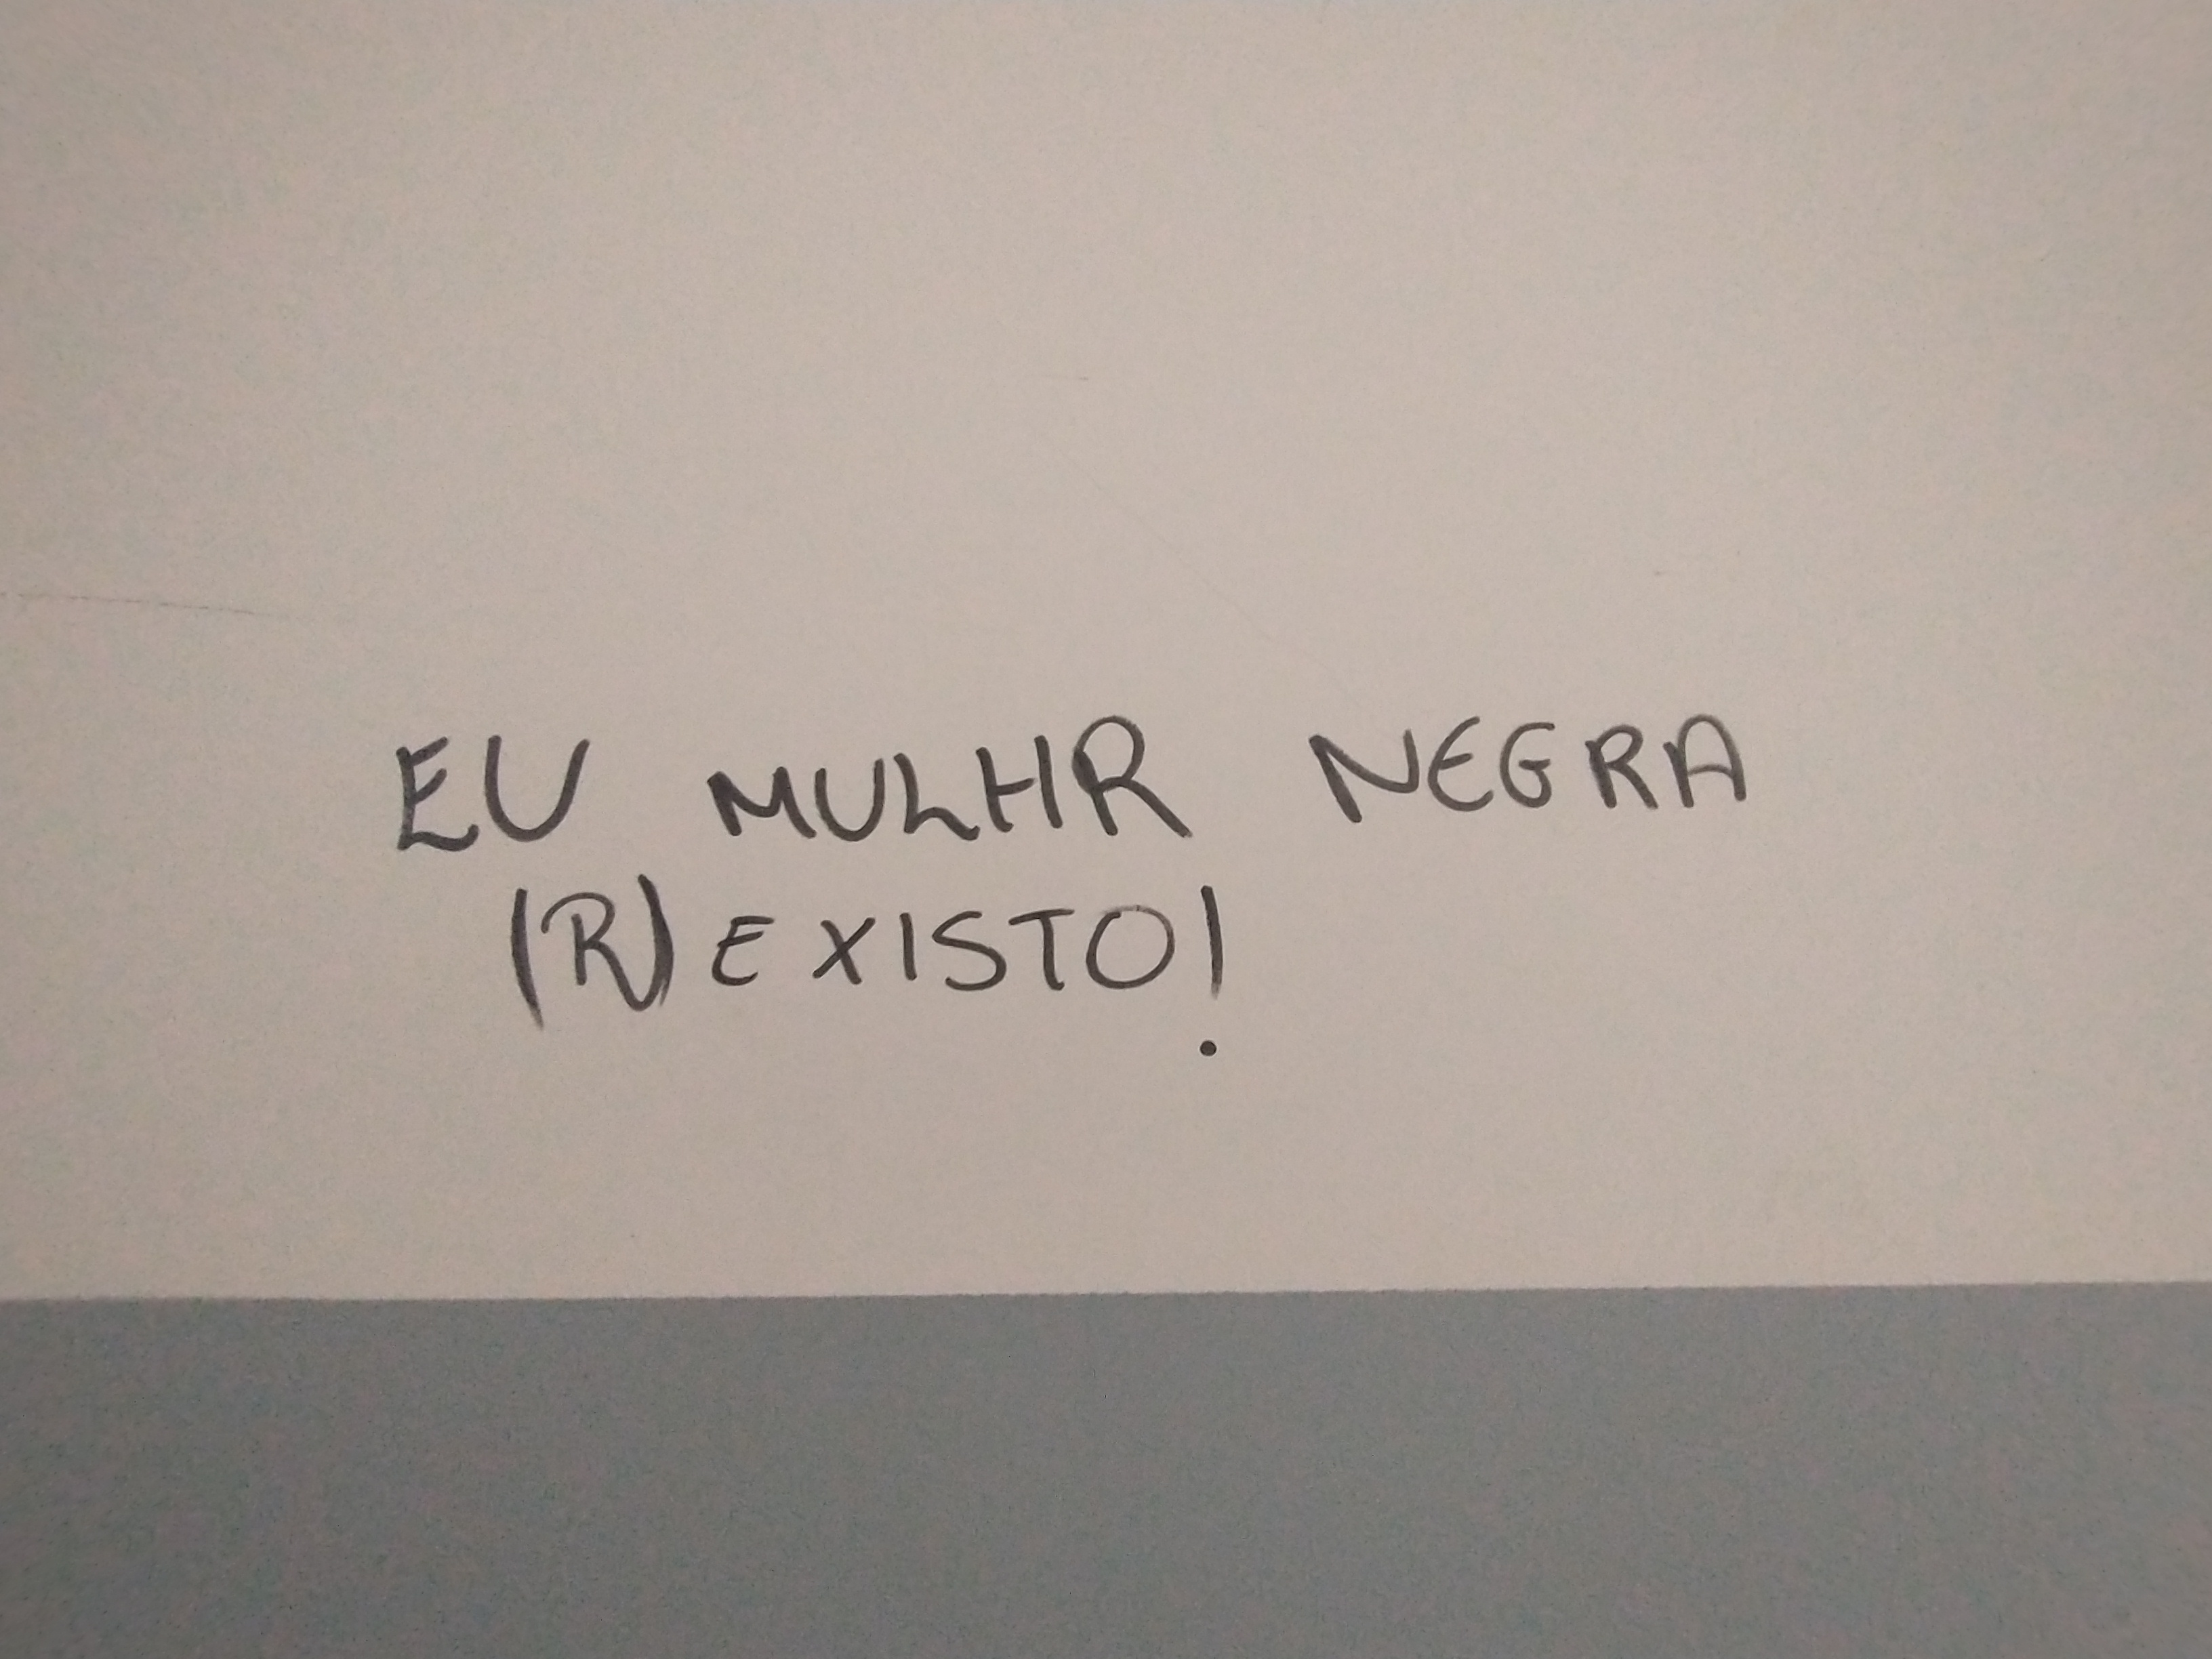 EU MULHR NEGRA
(R)EXISTO!